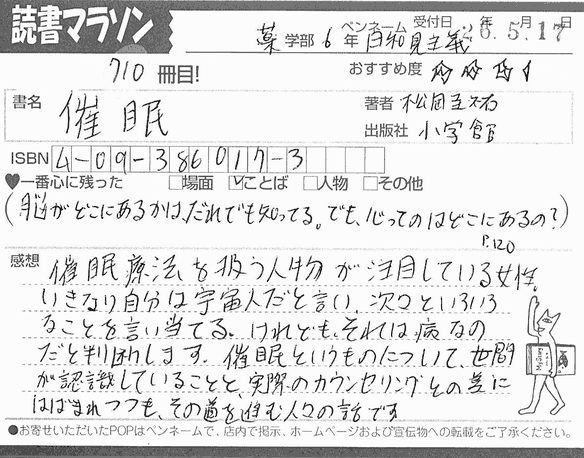 読書マラソン
薬 学部 6 年 ペンネーム 日和見主義 受付日 26年5月17日
710 冊目! おすすめ度 ☆☆☆
書名 催眠 著者 松岡圭祐
出版社 小学館
ISBN 4-09-386017-3
♥一番心に残った □場面 ☑ことば □人物 □その他
(脳がどこにあるかは、だれでも知ってる。でも、心ってのはどこにあるの?)
P.120
感想 催眠療法を扱う人物が注目している女性。
いきなり自分は宇宙人だと言い、次々といろいろ
なことを言い当てる。けれども、それは病なの
だと判断します。催眠というものについて、世間
が認識していることと、実際のカウンセリングとの差に
はばまれつつも、その道を進む人々の話です
●お寄せいただいたPOPはペンネームで、店内で掲示、ホームページおよび宣伝物への転載をご了承ください。